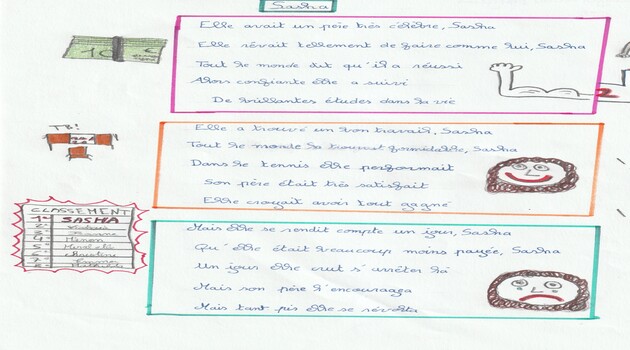 Sasha
Elle avait un père très célèbre, Sasha
Elle rêvait tellement de faire comme lui, Sasha
Tout le monde dit qu'il a réussi
Alors confiante elle a suivi
De brillantes études dans la vie
TB!
Elle a trouvé un bon travail, Sasha
Tout le monde la trouvait formidable, Sasha
Dans le tennis elle performait
Son père était très satisfait
Elle croyait avoir tout gagné
CLASSEMENT
1° SASHA
2°
3°
4° Manon
5°
6° Christine
7° Emma
8°
Mais elle se rendit compte un jour, Sasha
Qu'elle était beaucoup moins payée, Sasha
Un jour elle crut s'arrêter là
Mais son père l'encouragea
Mais tant pis elle se révolta
2